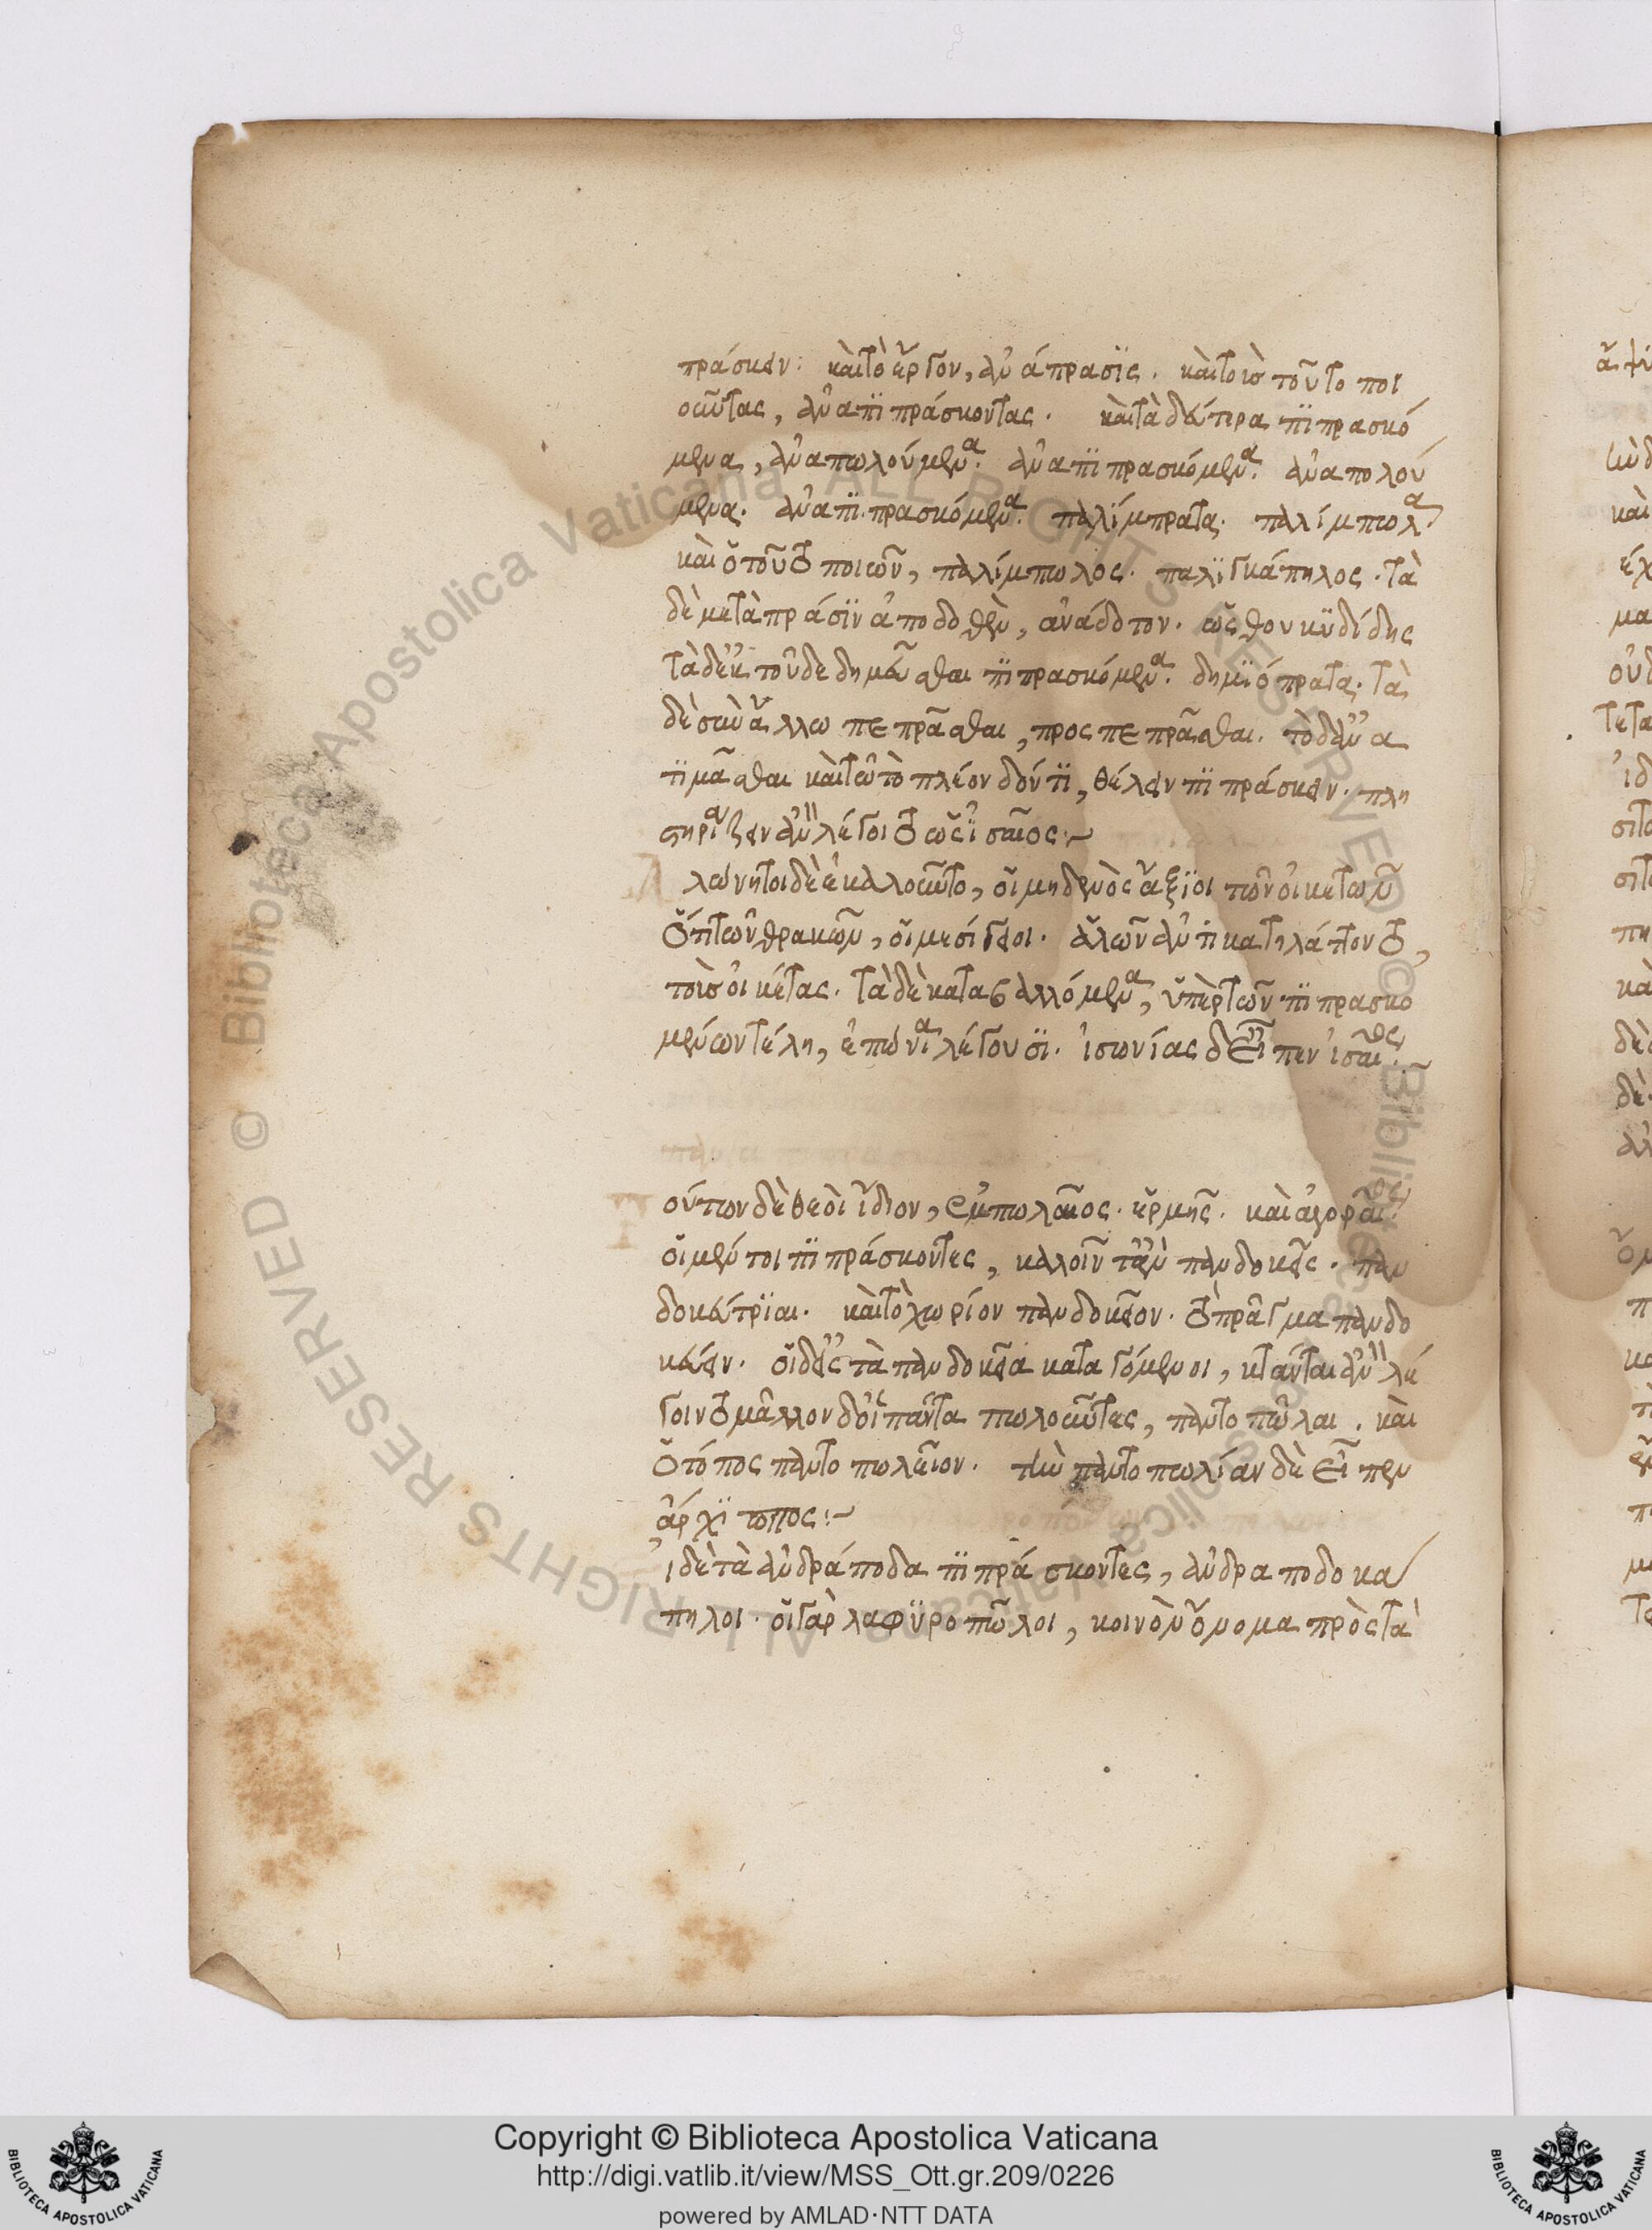 πράσκειν· καὶ τὸ ἔργον, ἀνάπρασϊς. καὶ τοὺς τοῦτο ποι
οῦντας, ἀναπϊπράσκοντας. καὶ τὰ δεύτερα πϊπρασκό
μενα, ἀναπωλούμενα. ἀναπϊπρασκόμενα. ἀναπολού
μενα. ἀναπϊπρασκόμενα. παλίμπρατα. παλίμπωλα
καὶ ὁ τοῦτο ποιῶν, παλίμπωλος. παλϊγκάπηλος. τὰ
δὲ μετὰ πράσϊν ἀποδοθὲν, ἀνάδοτον. ὡς θουκϋδίδης
τὰ δ' ἐκ τοῦδε δημεῦσθαι πϊπρασκόμενα. δημϊόπρατα. τὰ
δὲ σὺν ἄλλω πεπρᾶσθαι, προσπεπρᾶσθαι. τὸ δ' ἀνα
τϊμᾶσθαι καὶ τῶ τὸ πλέον δόντϊ, θέλειν πϊπράσκειν. πλη
στηριάζειν ἂν λέγοιτο ὡς ἰσαῖος:~
λωνητοι δὲ ἐκαλοῦντο, οἱ μηδενὸς ἄξϊοι τῶν οἰκετῶν
ὅτι τῶν θρακῶν, οἱ μεσόγειοι. ἁλῶν ἀντικατηλάττοντο,
τοὺς οἰκέτας. τὰ δὲ καταβαλλόμενα, ὑπὲρ τῶν πϊπρασκο
μένων τέλη, ἐπώνια λέγουσϊ. ἰσωνίας δ' εἶπεν ἰσαῖος.
ούτων δὲ θεοὶ ἴδιον, ἐμπολαῖος. ἑρμῆς. καὶ ἀγοραῖος
οἱ μέντοι πϊπράσκοντες, καλοῖντ' ἂν πανδοκεῖς. παν
δοκεύτρϊαι. καὶ τὸ χωρίον πανδοκεῖον. τὸ πρᾶγμα πανδο
κεύειν. οἱ δ' εἰς τὰ πανδοκεῖα καταγόμενοι, κτάνται ἂν λέ
γοιντο μᾶλλον δ' οἱ πάντα πωλοῦντες, παντοπῶλαι. καὶ
ὁ τόπος παντοπωλεῖον. τὴν παντοπωλίαν δὲ εἶπεν
ἀρχϊτοπος:~
ἱ δὲ τὰ ἀνδράποδα πϊπράσκοντες, ἀνδραποδοκα
πηλοι. οἱ γὰρ λαφϋροπῶλοι, κοινὸν ὄνομα πρὸς τὰ
Copyright © Biblioteca Apostolica Vaticana
http://digi.vatlib.it/view/MSS_Ott.gr.209/0226
powered by AMLAD·NTT DATA